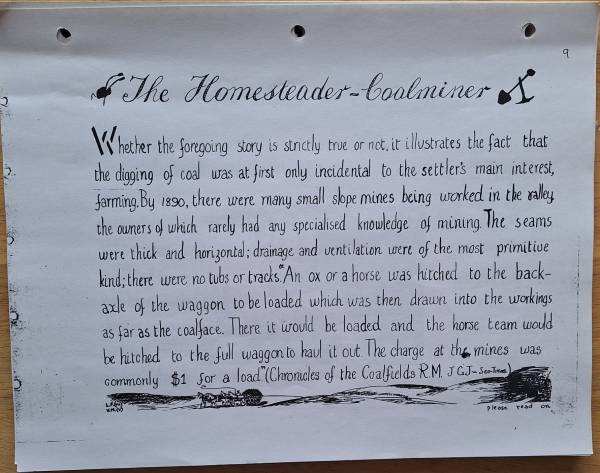 9
The Homesteader-Coalminer
Whether the foregoing story is strictly true or not, it illustrates the fact that
the digging of coal was at first only incidental to the settler's main interest,
farming. By 1890, there were many small slope mines being worked in the valley
the owners of which rarely had any specialised knowledge of mining. The seams
were thick and horizontal; drainage and ventilation were of the most primitive
kind; there were no tubs or tracks. "An ox or a horse was hitched to the back-
axle of the waggon to be loaded which was then drawn into the workings
as far as the coalface. There it would be loaded and the horse team would
be hitched to the full waggon to haul it out. The charge at the mines was
commonly $1 for a load." (Chronicles of the Coalfields R.M. J G.J-
please read on